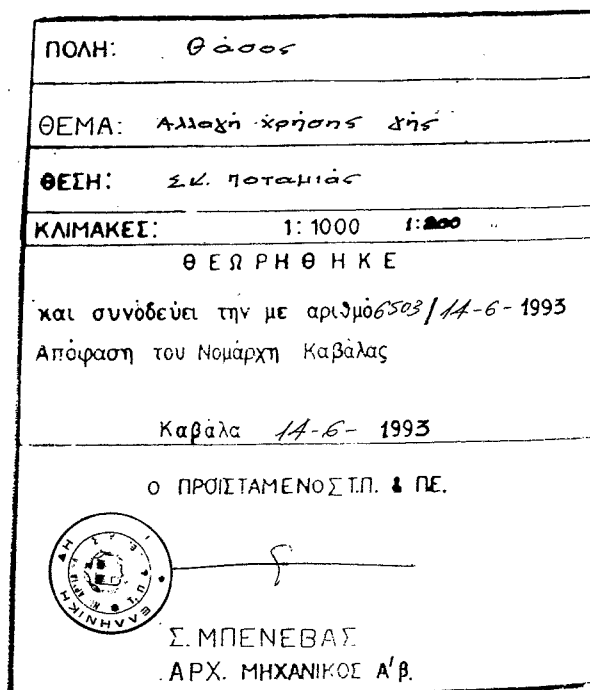 ΠΟΛΗ: Θάσος
ΘΕΜΑ: Αλλαγή χρήσης γής
ΘΕΣΗ: ΣΚ. ποταμιάς
ΚΛΙΜΑΚΕΣ: 1:1000 1:200
ΘΕΩΡΗΘΗΚΕ
και συνοδεύει την με αριθμό 6503/14-6-1993
Απόφαση του Νομάρχη Καβάλας
Καβάλα 14-6-1993
Ο ΠΡΟΙΣΤΑΜΕΝΟΣ Τ.Π. & ΠΕ.
ΕΛΛΗΝΙΚΗ ΔΗ
Σ. ΜΠΕΝΕΒΑΣ
ΑΡΧ. ΜΗΧΑΝΙΚΟΣ Α'β.